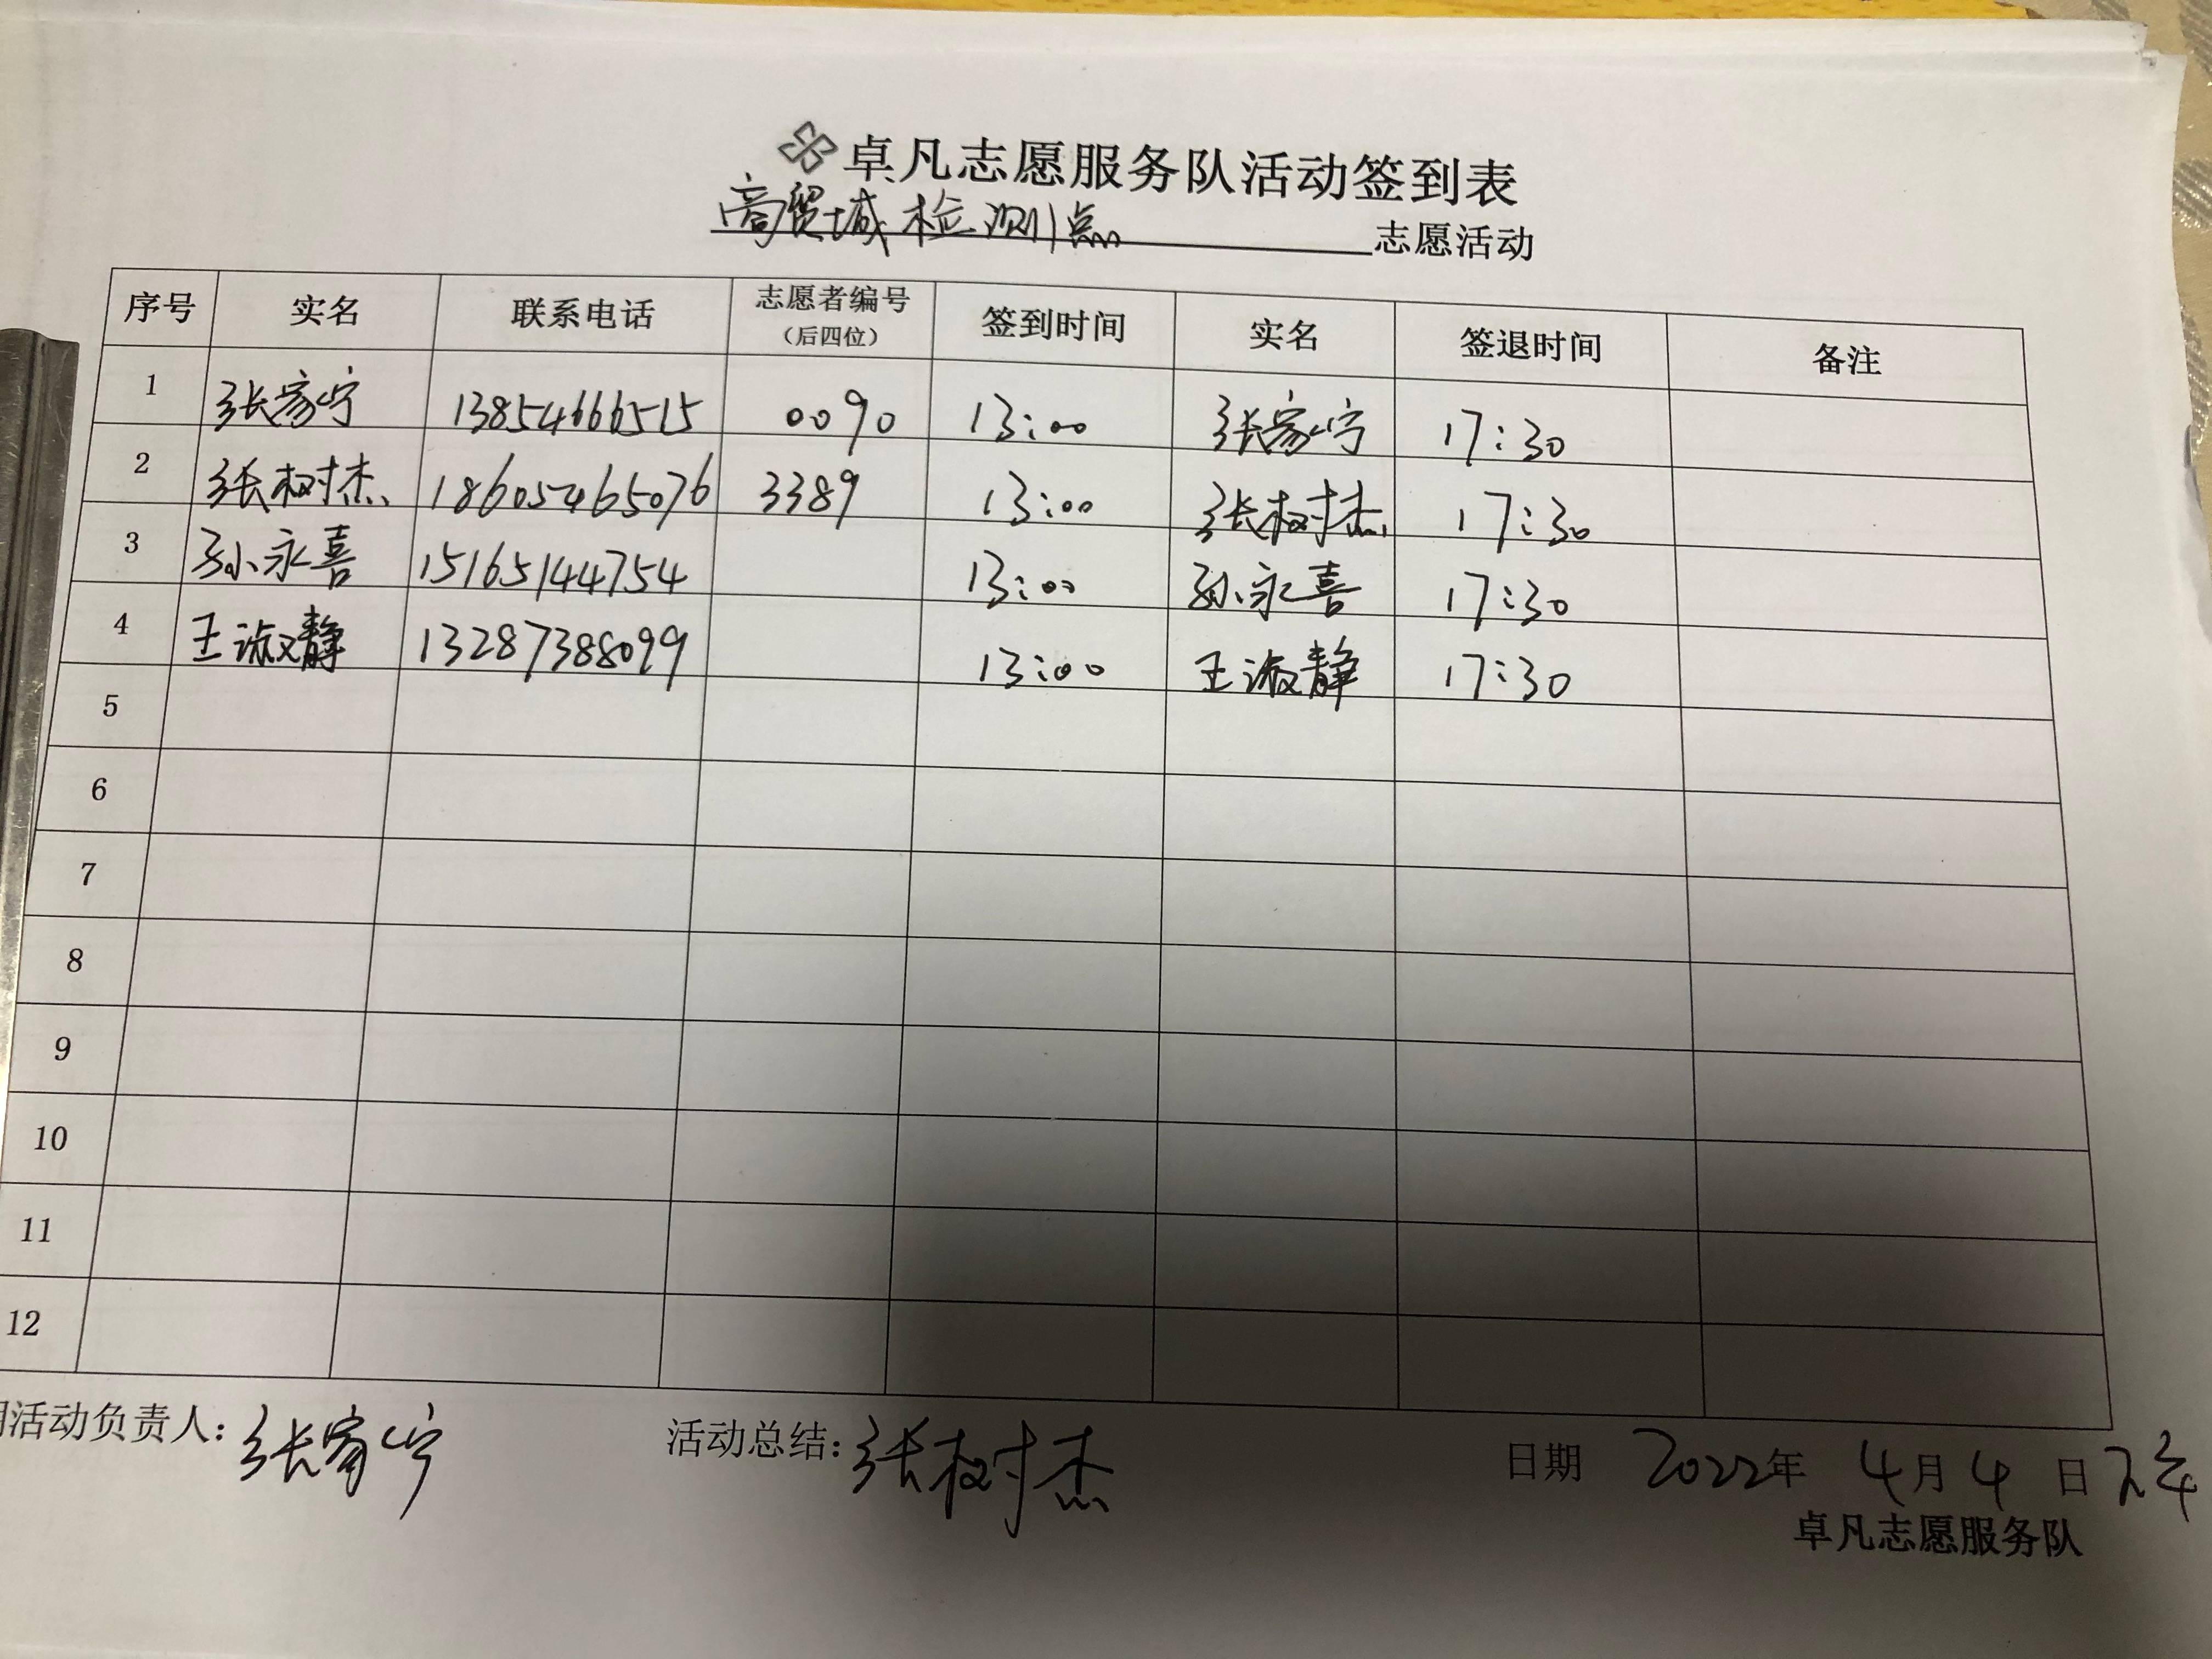 卓凡志愿服务队活动签到表
商贸城检测点 志愿活动
序号 实名 联系电话 志愿者编号（后四位） 签到时间 实名 签退时间 备注
1 张家宁 13854666515 0090 13:00 张家宁 17:30
2 张树杰 18605465076 3389 13:00 张树杰 17:30
3 孙永喜 15165144754 13:00 孙永喜 17:30
4 王淑静 13287388099 13:00 王淑静 17:30
5
6
7
8
9
10
11
12
活动负责人：张家宁 活动总结：张树杰 日期 2022年 4月4日
卓凡志愿服务队